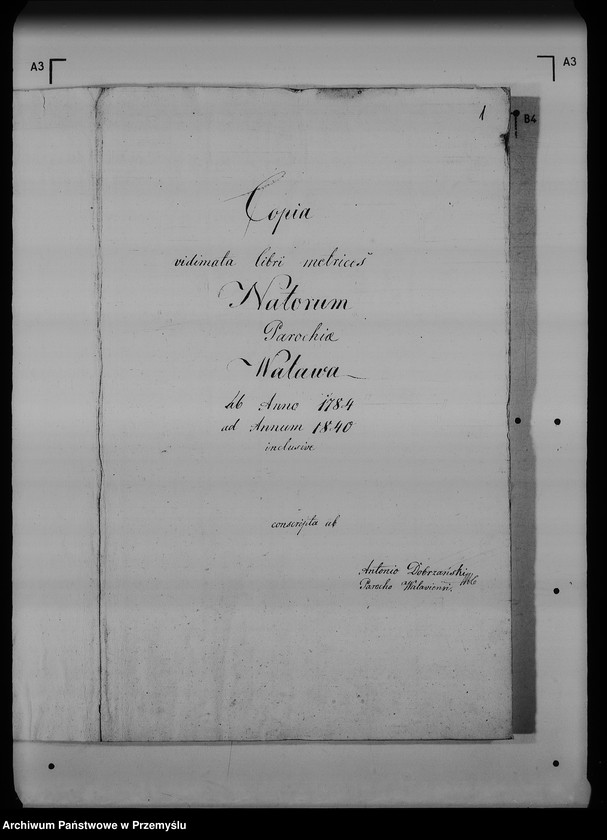 A3
A3
1
B4
Copia
vidimata libri metrices
Natorum
Parochiæ
Walawa
Ab Anno 1784
ad Annum 1840
inclusive
conscripta ab
Antonio Dobrzański
Parocho Walaviensi
Archiwum Państwowe w Przemyślu